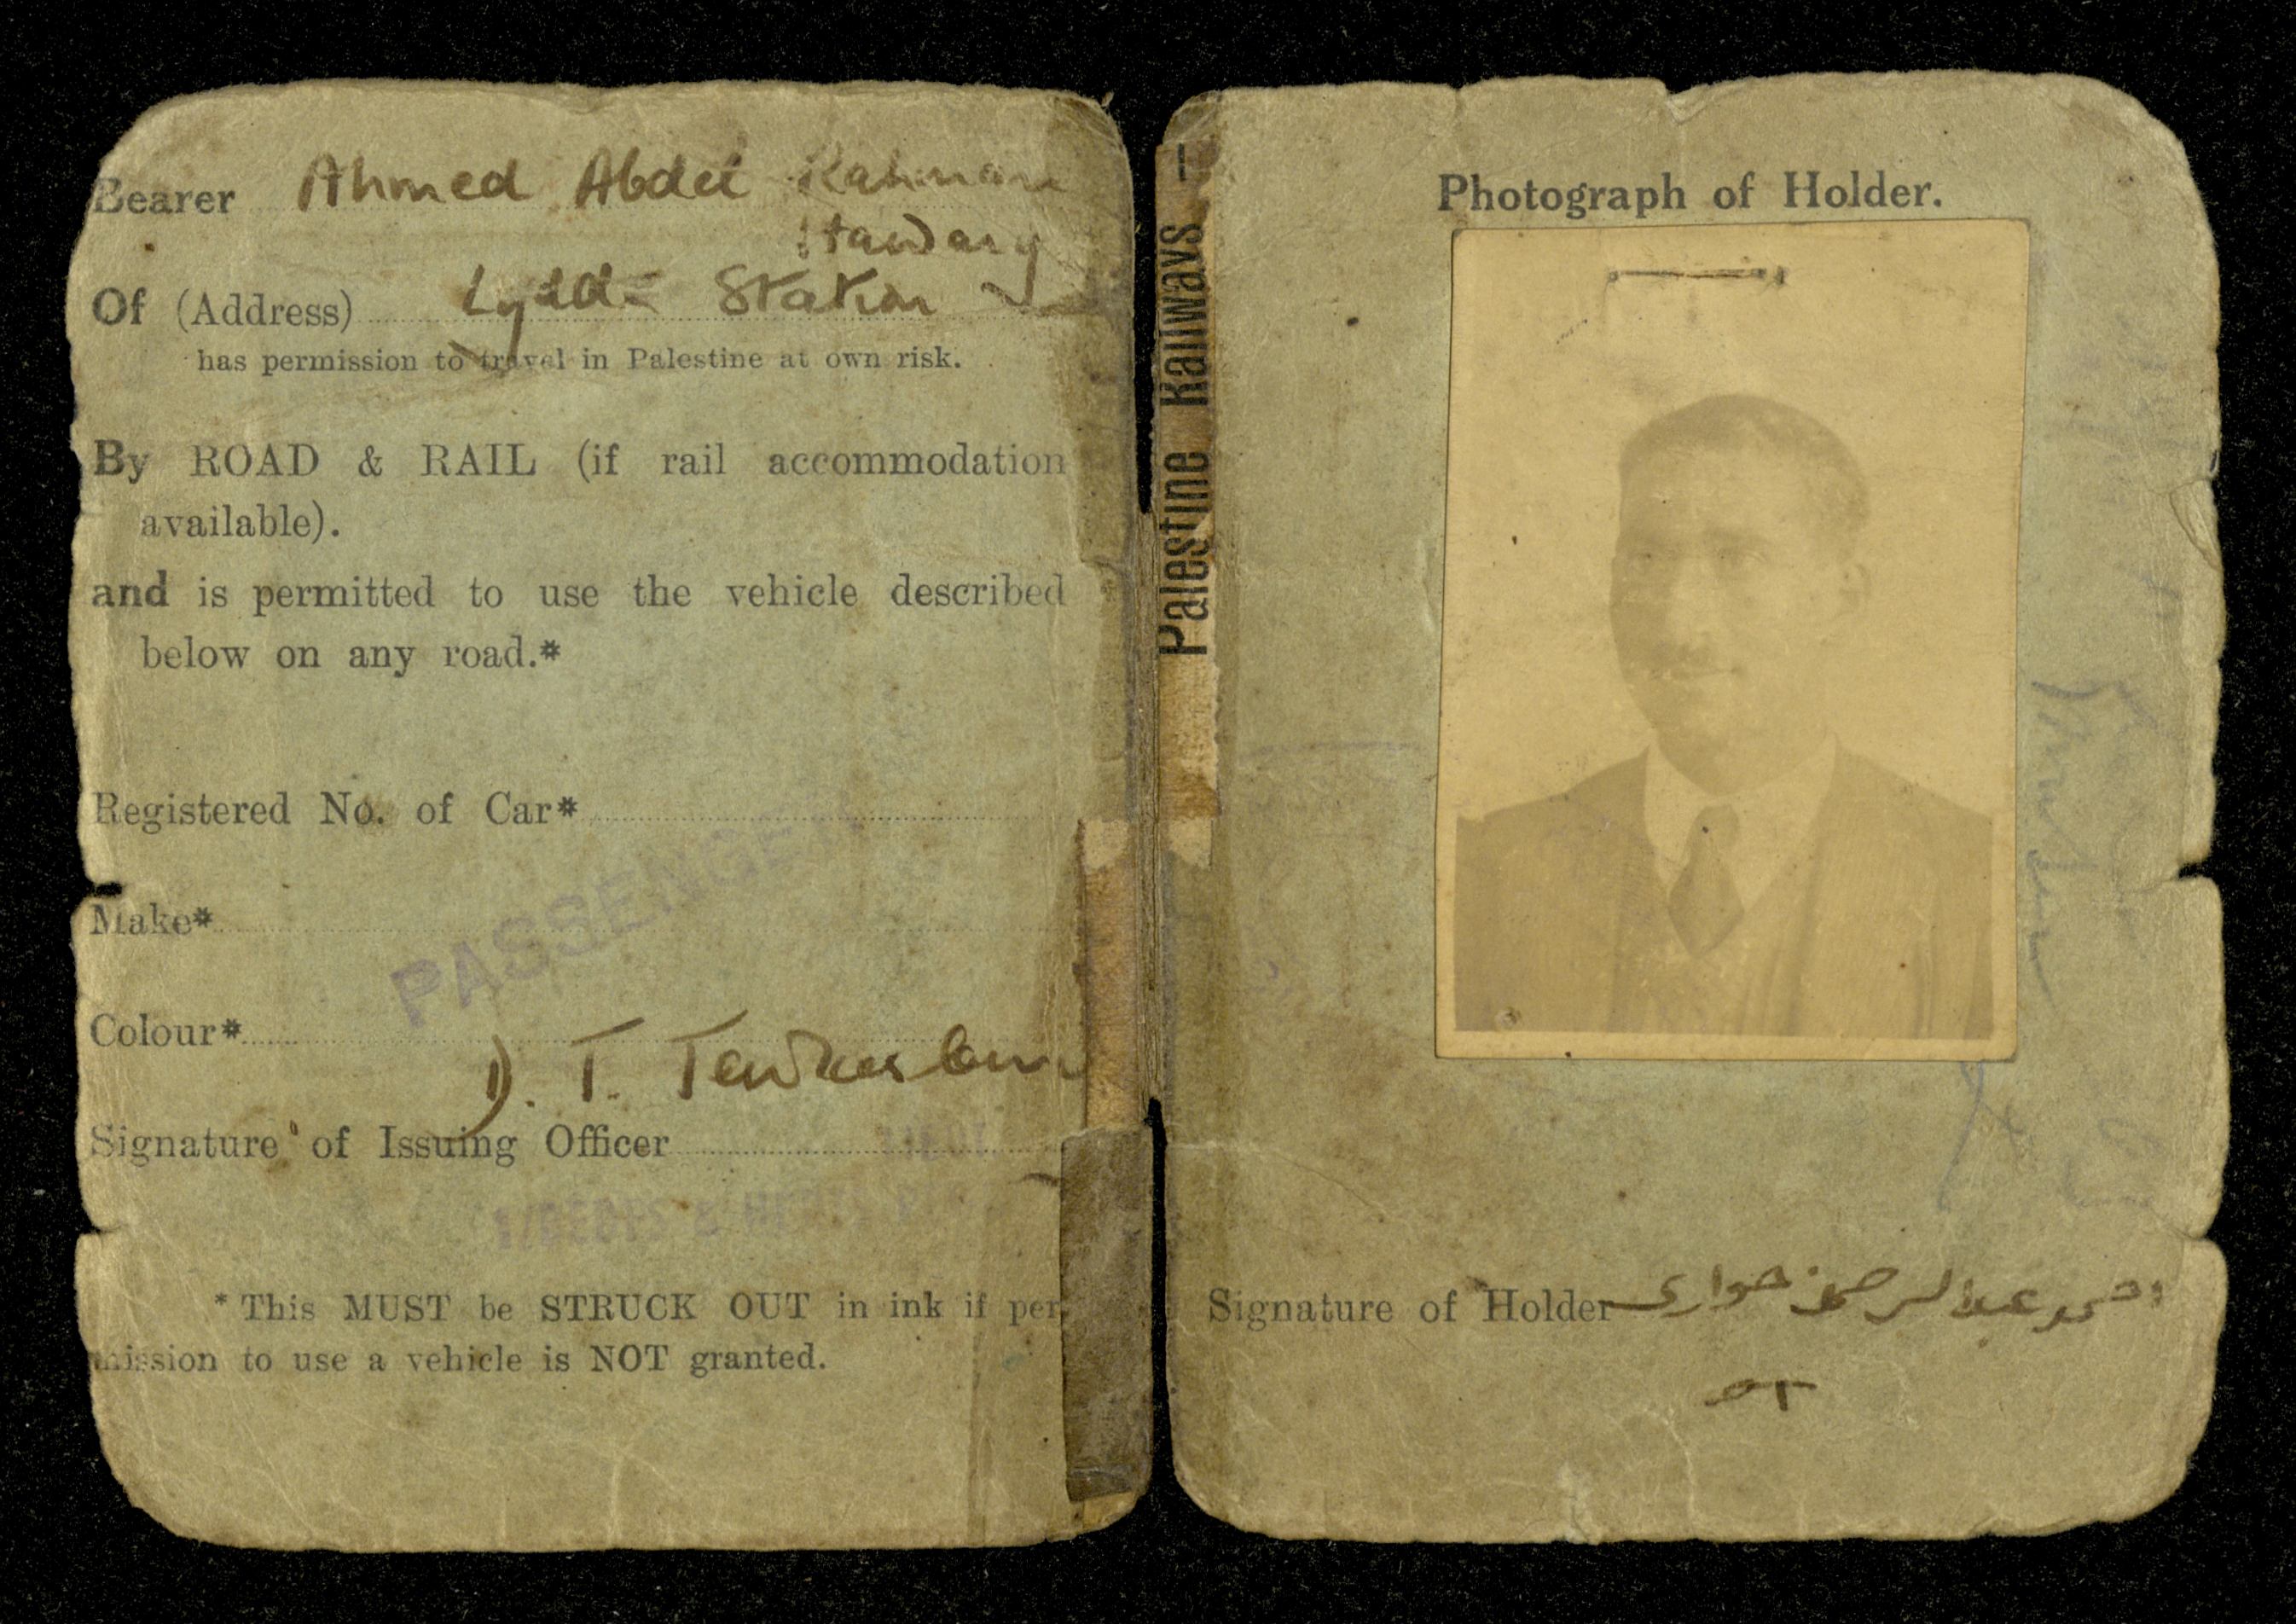 Bearer Ahmed Abdel Rahman
Hawary
Of (Address) Lydda Station
has permission to travel in Palestine at own risk.
By ROAD & RAIL (if rail accommodation
available).
and is permitted to use the vehicle described
below on any road.*
Registered No. of Car*
Make*
PASSENGER
Colour*
D. T. Tewkesbury
Signature of Issuing Officer
* This MUST be STRUCK OUT in ink if per
mission to use a vehicle is NOT granted.
Palestine Railways —
Photograph of Holder.
Signature of Holder احمد عبد الرحمن حوارى